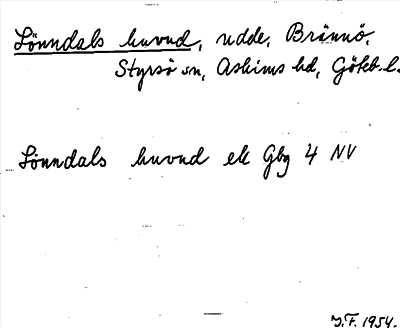 Lönndals huvud, udde, Brännö,
Styrsö sn, Askims hd, Göteb. l.
Lönndals huvud ek Gbg 4 NV
J.F. 1954.